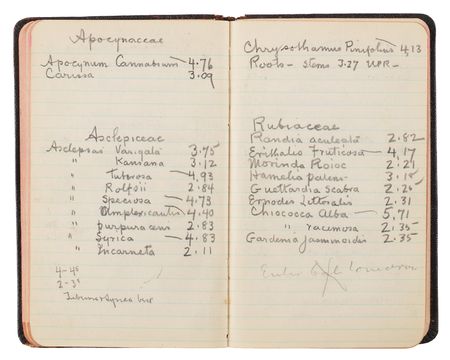 Apocynaceae
Apocynum Cannabium 4.76
Carissa 3.09
Asclepiceae
Asclepsas Varigata 3.75
" Kansana 3.12
" Tuberosa 4.93
" Rolfsii 2.84
" Speciosa 4.73
" Amplexicaulis 4.40
" purpuracens 2.83
" Syrica 4.83
" Incarneta 2.11
4-4
2-3
Chrysothamus Pinifolius 4,13
Roots - Stems 3.27 UPR -
Rubiaceae
Randia aculeata 2.82
Erithalis Fruticosa 4,17
Morinda Roioc 2.21
Hamelia patens 3.18
Guettardia Scabra 2.25
Ernodes Littoralis 2.31
Chiococca Alba 5,71
" racemosa 2.35
Gardenia Jasminoides 2.35